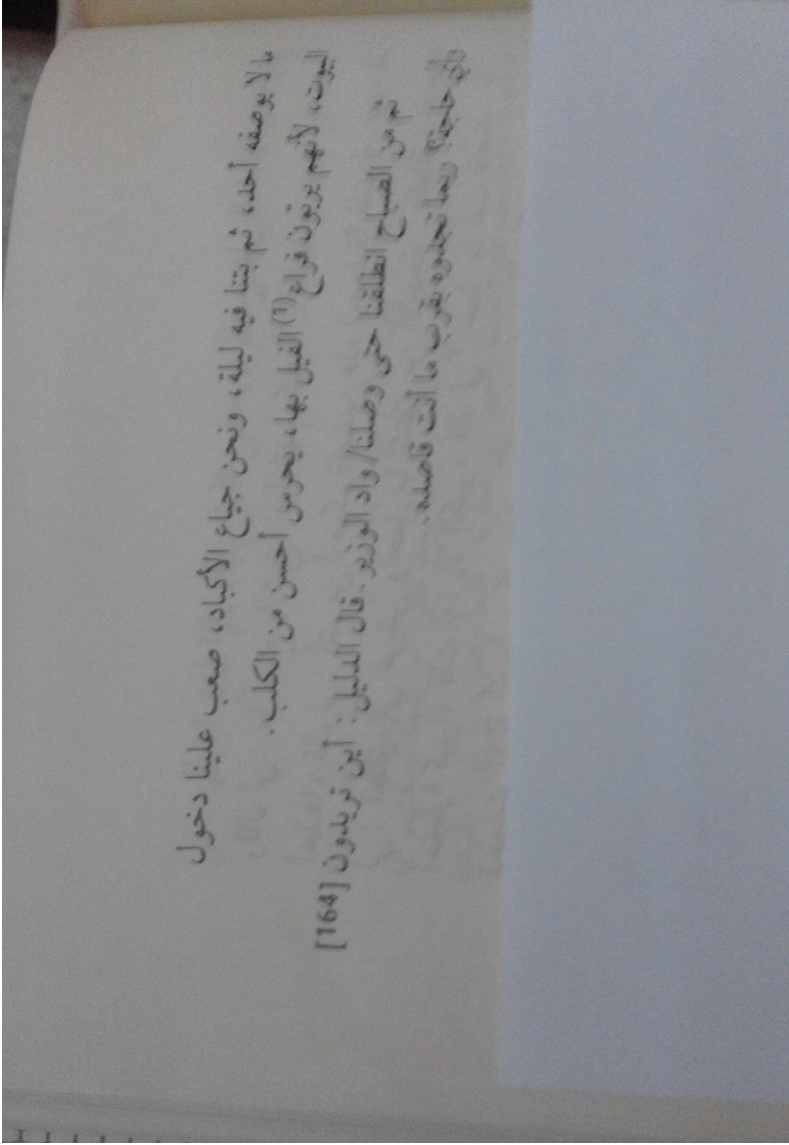 ما لا يوصفه أحد، ثم بتنا فيه ليلة، ونحن جياع الأكباد، صعب علينا دخول
البيوت، لأنهم يربّون فراع(١) الفيل بها، يحرس أحسن من الكلب.
ثم من الصباح انطلقنا حتى وصلنا/ واد الوزير. قال الدليل: أين تريدون [164]
وأي حاجة؟ ربما تجدوه بقرب ما أنت قاصده.